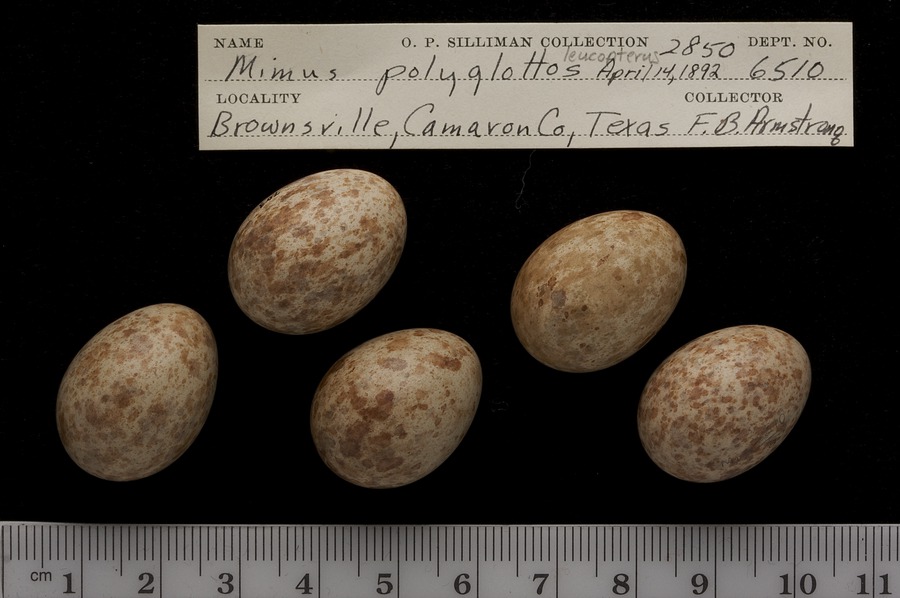 NAME O. P. SILLIMAN COLLECTION 2850 DEPT. NO.
leucopterus
Mimus polyglottos April 14, 1892 6510
LOCALITY COLLECTOR
Brownsville, Camaron Co, Texas F. B. Armstrong
cm 1 2 3 4 5 6 7 8 9 10 11